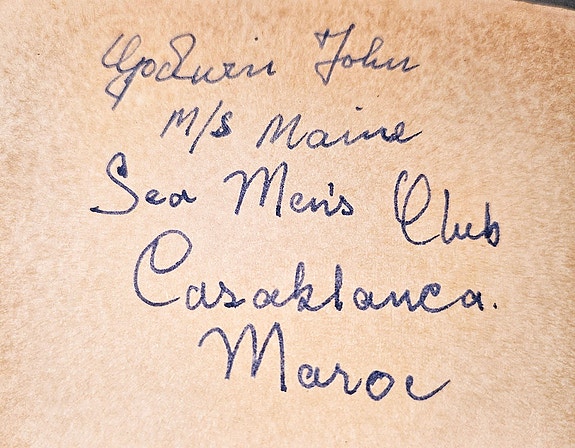 John
M/S Maine
Sea Men's Club
Casaklanca.
Maroc